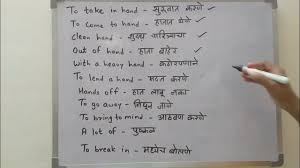 To take in hand - सुरुवात करणे ✓
To come to hand - हातात येणे ✓
Clean hand - शुद्ध चारित्र्याचा
Out of hand - हाता बाहेर ✓
With a heavy hand - कठोरपणाने
To lend a hand - मदत करणे
Hands off - हात लावू नका
To go away - निघून जाणे
To bring to mind - आठवण करणे
A lot of - पुष्कळ
To break in - मध्येच बोलणे